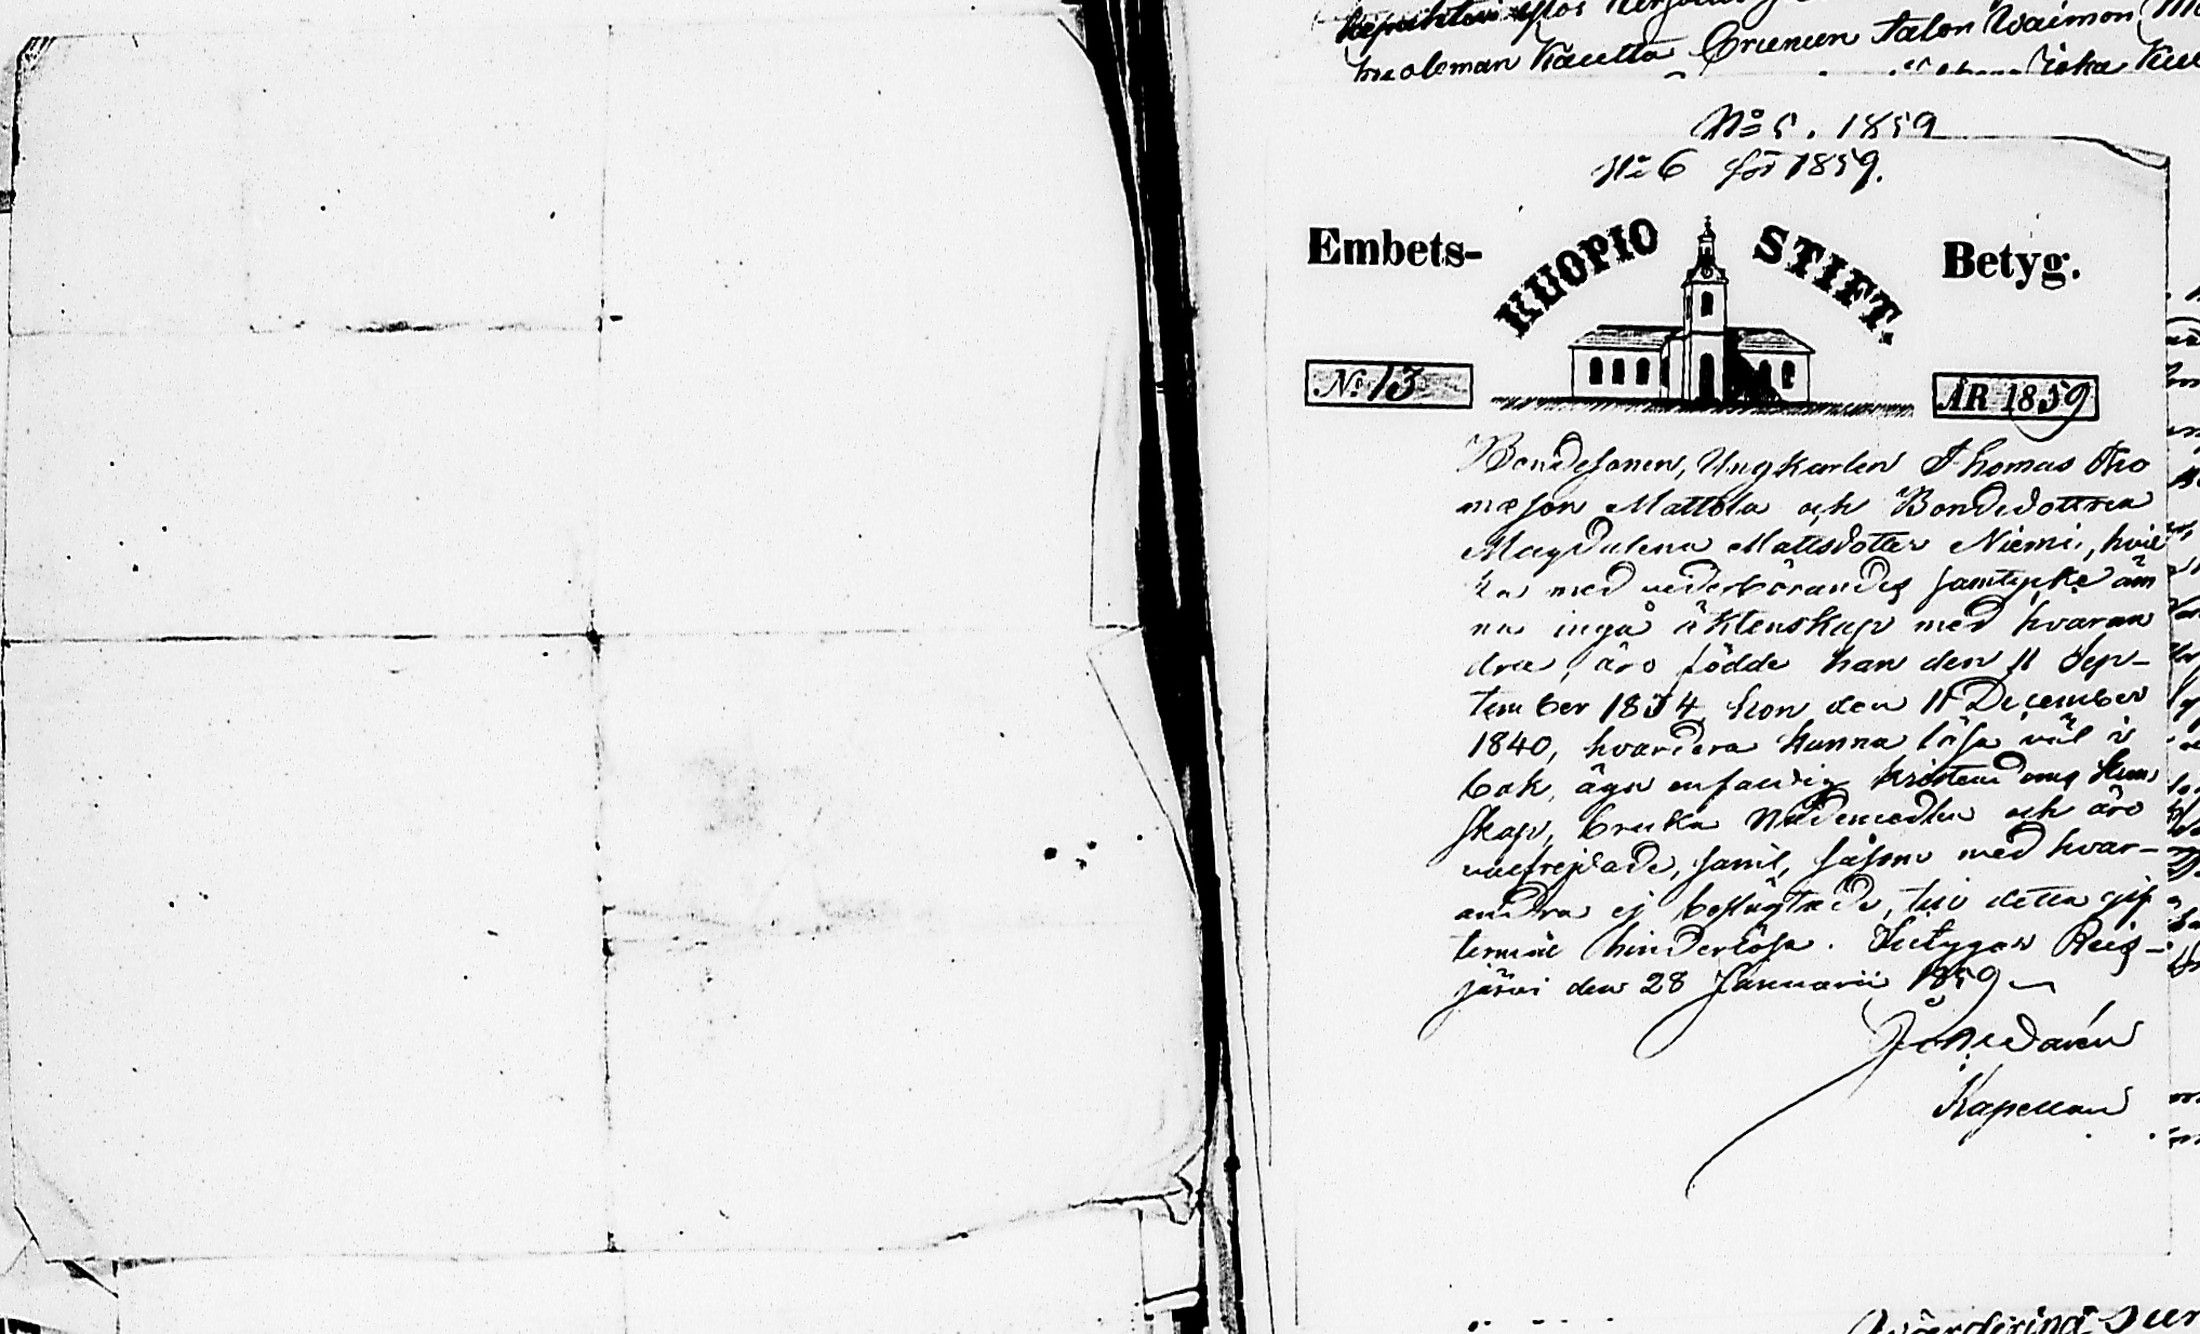 muoleman Kautta Talon Waimon
No 5. 1859
No 6 för 1859.
Embets- KUOPIO STIFT. Betyg.
No 13 ÅR 1859
Bondesonen, Ungkarlen Thomas Tho
mæson Mattola och Bondedottren
Magdalena Mattsdotter Niemi, hvil
ka med vederbörandes samtycke äm
na ingå äktenskap med hvaran
dra, äro födde han den 11 Sep-
tember 1834, hon den 11 December
1840, hvardera kunna läsa väl i
bok, äga enfaldig kristendoms kun
skap, bruka Nådemedlen och äro
välfrejdade, samt, såsom med hvar-
andra ej beslägtade, till detta gif
termål hinderlösa. Betygar Reis-
järvi den 28 Januarii 1859
Kapellan